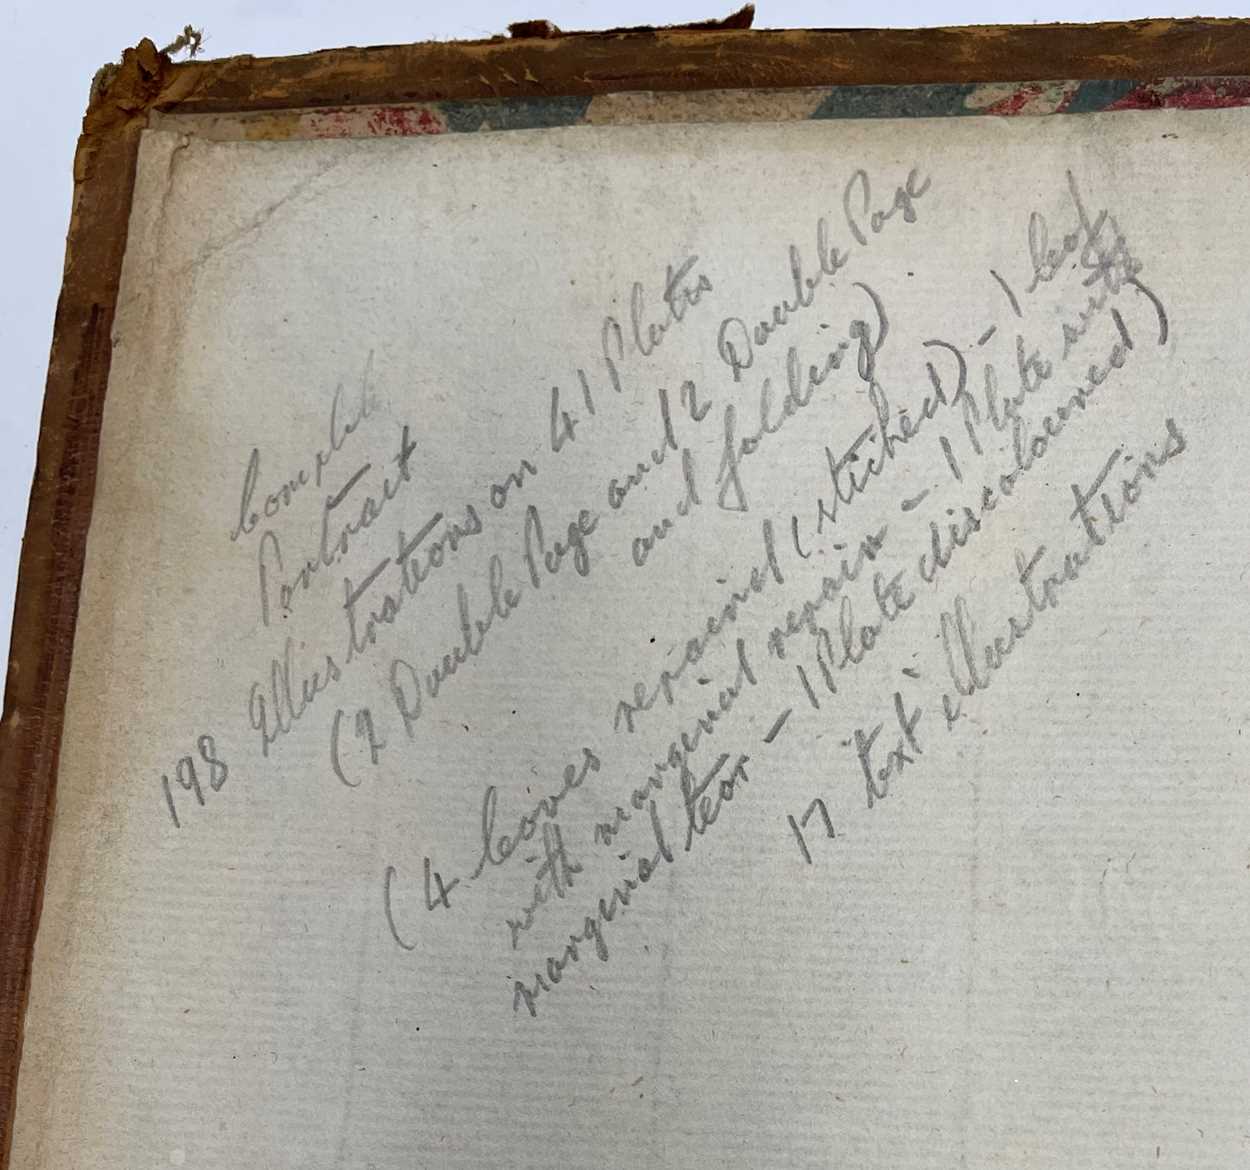 Complete
Portrait
198 Illustrations on 41 Plates
(2 Double Page and 2 Double Page
and folding)
(4 leaves repaired (stiched) - 1 leaf
with marginal repair - 1 Plate with
marginal tear - 1 Plate discoloured)
17 text illustrations